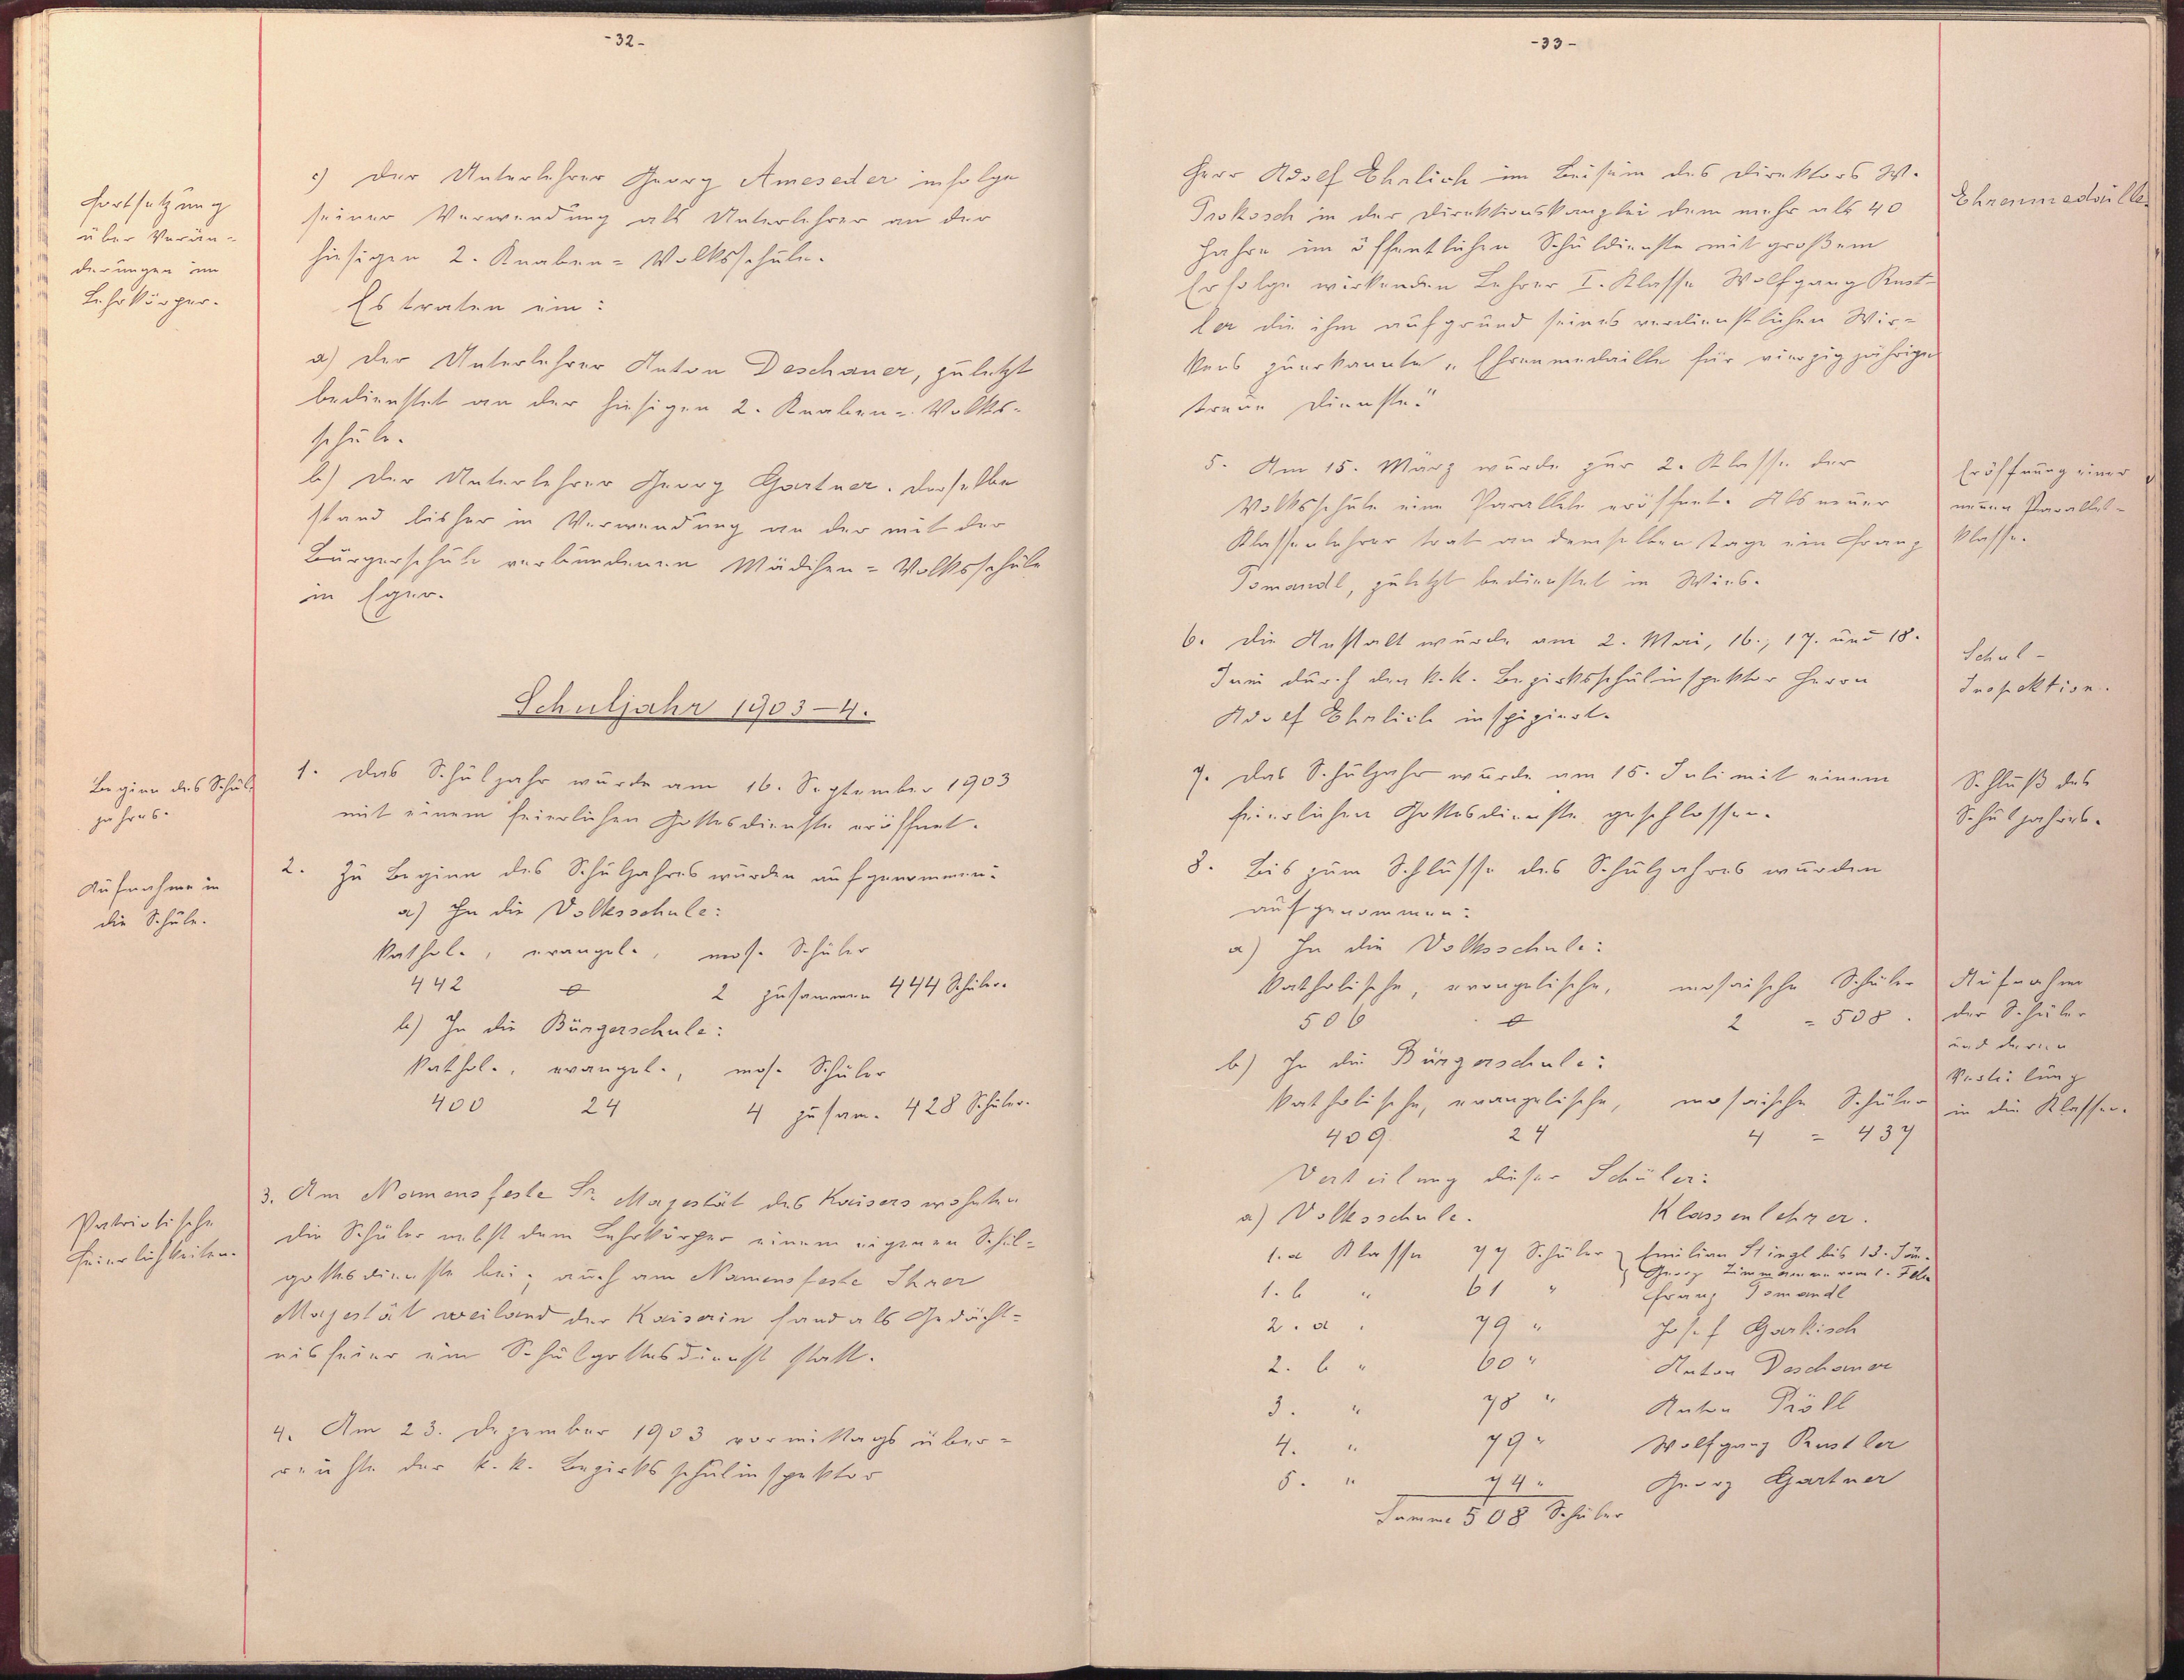 -32-
Fortsetzung
über Verän-
derungen im
Lehrkörper.
c) Der Unterlehrer Georg Ameseder infolge
seiner Verwendung als Unterlehrer an der
hiesigen 2. Knaben-Volksschule.
Es traten ein:
a) Der Unterlehrer Anton Deschauer, zuletzt
bedienstet an der hiesigen 2. Knaben-Volks-
schule.
b) Der Unterlehrer Georg Gartner. Derselbe
stand bisher in Verwendung an der mit der
Bürgerschule verbundenen Mädchen-Volksschule
in Eger.
Schuljahr 1903-4.
Beginn des Schul-
jahres.
1. Das Schuljahr wurde am 16. September 1903
mit einem feierlichen Gottesdienste eröffnet.
Aufnahme in
die Schule.
2. Zu Beginn des Schuljahres wurden aufgenommen:
a) In die Volksschule:
kathol., evangel., mos. Schüler
442 0 2 zusammen 444 Schüler.
b) In die Bürgerschule:
kathol., evangel., mos. Schüler
400 24 4 zusam. 428 Schüler.
Patriotische
Feierlichkeiten.
3. Am Namensfeste Sr. Majestät des Kaisers wohnten
die Schüler nebst dem Lehrkörper einem eigenen Schul-
gottesdienste bei; auch am Namensfeste Ihrer
Majestät weiland der Kaiserin fand als Gedächt-
nisfeier ein Schulgottesdienst statt.
4. Am 23. Dezember 1903 vormittags über-
reichte der k. k. Bezirksschulinspektor
-33-
Herr Adolf Ehrlich im Beisein des Direktors W.
Prokosch in der Direktionskanzlei dem mehr als 40
Jahre im öffentlichen Schuldienste mit großem
Erfolge wirkenden Lehrer I. Klasse Wolfgang Rust-
ler die ihm aufgrund seines verdienstlichen Wir-
kens zuerkannte „Ehrenmedaille für vierzigjährige
treue Dienste."
Ehrenmedaille.
5. Am 15. März wurde zur 2. Klasse der
Volksschule eine Parallele eröffnet. Als neuer
Klassenlehrer trat an demselben Tage ein Franz
Tomandl, zuletzt bedienstet in Wies.
Eröffnung einer
neuen Parallel-
klasse.
6. Die Anstalt wurde am 2. Mai, 16., 17. und 18.
Juni durch den k. k. Bezirksschulinspektor Herrn
Adolf Ehrlich inspiziert.
Schul-
Inspektion.
7. Das Schuljahr wurde am 15. Juli mit einem
feierlichen Gottesdienste geschlossen.
Schluß des
Schuljahres.
8. Bis zum Schlusse des Schuljahres wurden
aufgenommen:
a) In die Volksschule:
katholische, evangelische, mosaische Schüler
506 0 2 = 508.
b) In die Bürgerschule:
katholische, evangelische, mosaische Schüler
409 24 4 = 437
Aufnahme
der Schüler
und deren
Verteilung
in die Klassen.
Verteilung dieser Schüler:
a) Volksschule. Klassenlehrer.
1. a Klasse 77 Schüler Emilian Stingl bis 13. Jän.
Georg Zimmermann vom 1. Feb.
1. b " 61 " Franz Tomandl
2. a " 79 " Josef Garkisch
2. b " 60 " Anton Deschauer
3. " 78 " Anton Pröll
4. " 79 " Wolfgang Rustler
5. " 74 " Georg Gartner
Summe 508 Schüler